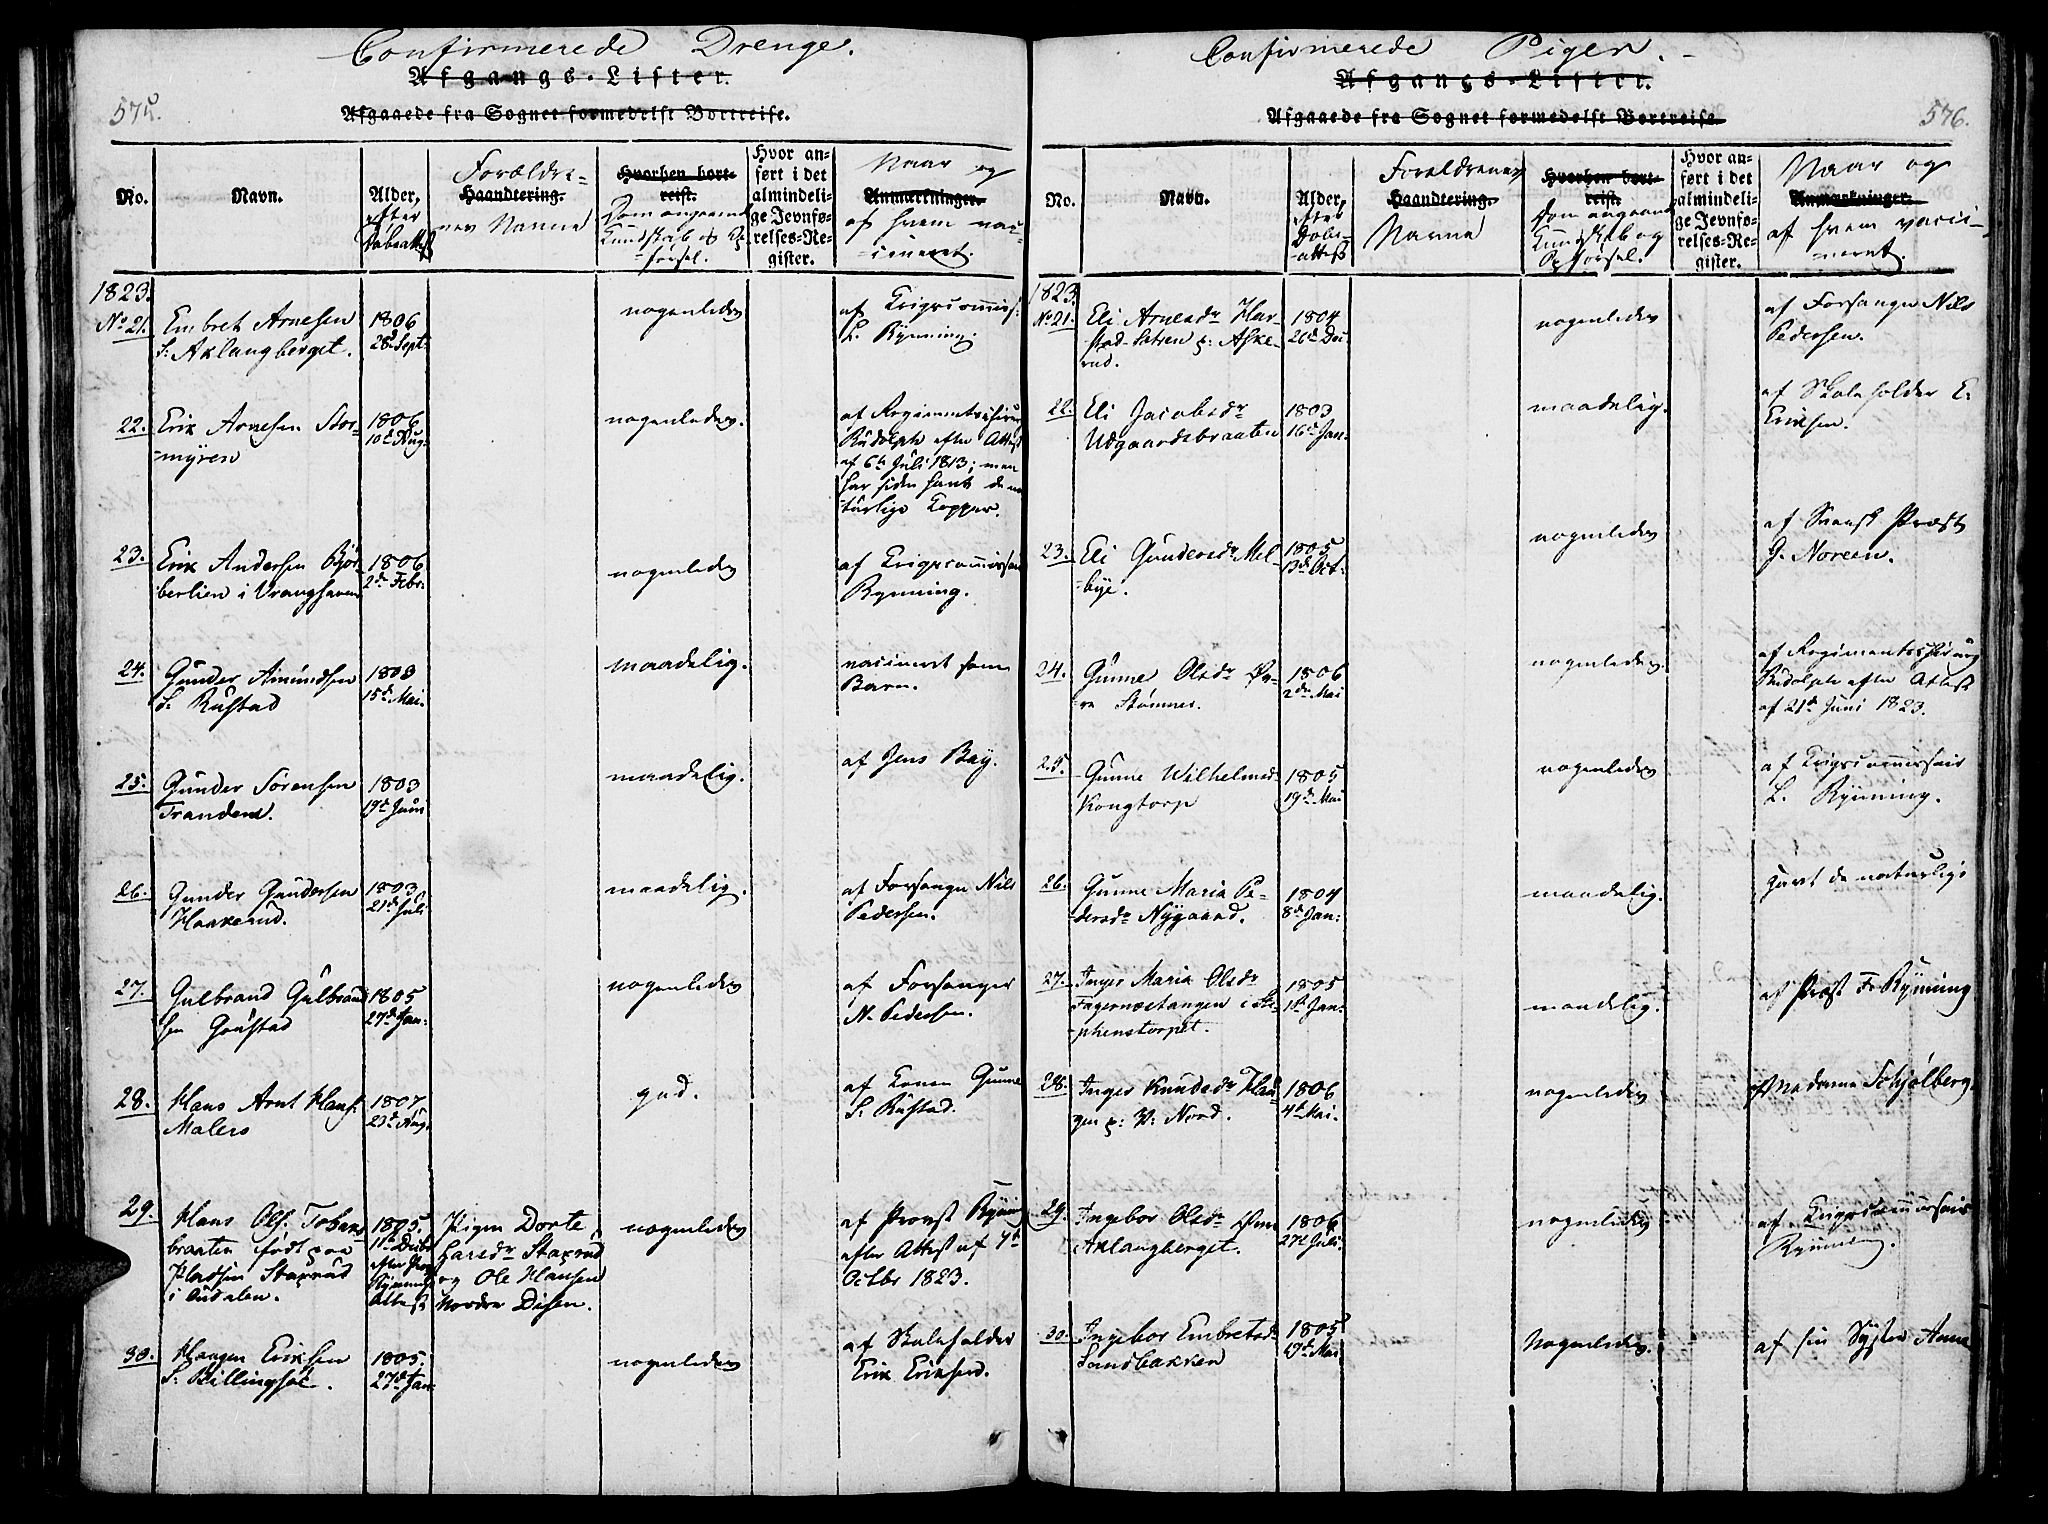 Confirmerede Drenge.
Afgangs-Lister.
575.
Afgaaede fra Sognet formedelst Bortreise.
No.
Navn.
Alder,
efter
Døbeattest
Forældre-
Haandtering.
nes Navne
Hvorhen bort-
reist.
Dom angaaende
Kundskab og Op-
førsel.
Hvor an-
ført i det
almindeli-
ge Jevnfø-
relses-Re-
gister.
Naar og
Anmærkninger.
af hvem vac-
cineret.
1823.
No 21.
Embret Arnesen
S: Aklangberget.
1806
28de Sept:
nogenledes
af Krigscommiss:
L. Rynning.
22.
Erik Arnesen Stor-
myren
1806
10de Aug:
nogenledes.
af Regimentschirurg
Rudolph efter Attest
af 6te Juli 1813; men
har siden havt de na-
turlige Kopper.
23.
Erik Andersen Bjør-
berlien i Vranghaven
1806
2den Febr:
nogenledes
af Krigscommissair
Rynning.
24.
Gunder Amundsen
S: Rustad
1803
15de Mai.
maadelig.
vaccineret som
Barn.
25.
Gunder Sørensen
Trandem.
1803
19de Juni
maadelig.
af Jens Bay.
26.
Gunder Gundersen
Haakerud.
1803
21de Juli
maadelig.
af Forsanger Nils
Pedersen.
27.
Gulbrand Gulbrand-
sen Grustad
1805
27de Jan:
nogenledes
af Forsanger
N. Pedersen.
28.
Hans Arnt Hans:
Malers
1807
23de Aug.
god.
af Konen Gunne
S. Rustad.
29.
Hans Ols:
braaten født paa
Pladsen Staxrud
i Oudalen.
1805.
11te Decbr
efter Prov:
Rynnings
Attest
Pigen Dorte
Larsdr Staxrud
og Ole Hansen
Nordre Disen.
nogenledes
af Provst Rynning
efter Attest af 4de
Octbr 1823.
30.
Haagen Eriksen
S: Billingsøe.
1805.
27de Jan:
nogenledes
af Skoleholder
Erik Eriksen.
Confirmerede Piger.
Afgangs-Lister.
576.
Afgaaede fra Sognet formedelst Bortreise.
No.
Navn.
Alder,
efter
Døbe-
attest
Forældrenes
Haandtering.
Navne
Hvorhen bort-
reist.
Dom angaaende
Kundskab og
Opførsel.
Hvor an-
ført i det
almindeli-
ge Jevnfø-
relses-Re-
gister.
Naar og
Anmærkninger.
af hvem vacci-
neret.
1823.
No 21.
Eli Arnesdr Har-
stad-Sætren p: Aske-
rud.
1804
26de Dec:
nogenledes
af Forsanger Nils
Pedersen.
22.
Eli Jacobsdr
Udgaardsbraaten
1803
16de Jan:
maadelig.
af Skoleholder E.
Eriksen.
23.
Eli Gundersdr Mel-
bye.
1805
13de Oct:
nogenledes
af Svensk Præst
G. Noreen.
24.
Gunne Olsdr Øv-
re Stømner.
1806
2den Mai
nogenledes.
af Regimentschirurg
Rudolph efter Attest
af 21de Juni 1823.
25.
Gunne Wilhelmsd:
Kongtorp
1805
19de Mai
nogenledes
af Krigscommissair
L. Rynning.
26.
Gunne Maria Pe-
dersdr Nygaard.
1804
8de Jan:
maadelig.
havt de naturlige
27.
Inger Maria Olsdr
Fagernæstangen i Ste-
phenstorpet.
1805
1te Jan:
maadelig.
af Præst Fr Rynning
28.
Inger Knudsdr Hau-
gen p: V: Nord.
1806
4de Mai.
nogenledes
af Madame Schjølberg.
29.
Ingebor Olsdr Øvre
Aklangberget.
1806
27de Juli.
nogenledes
af Krigscommissair
Rynning.
30.
Ingebor Embretsdr
Sandbakken
1805
19de Mai
Nogenledes.
af sin Syster Anne